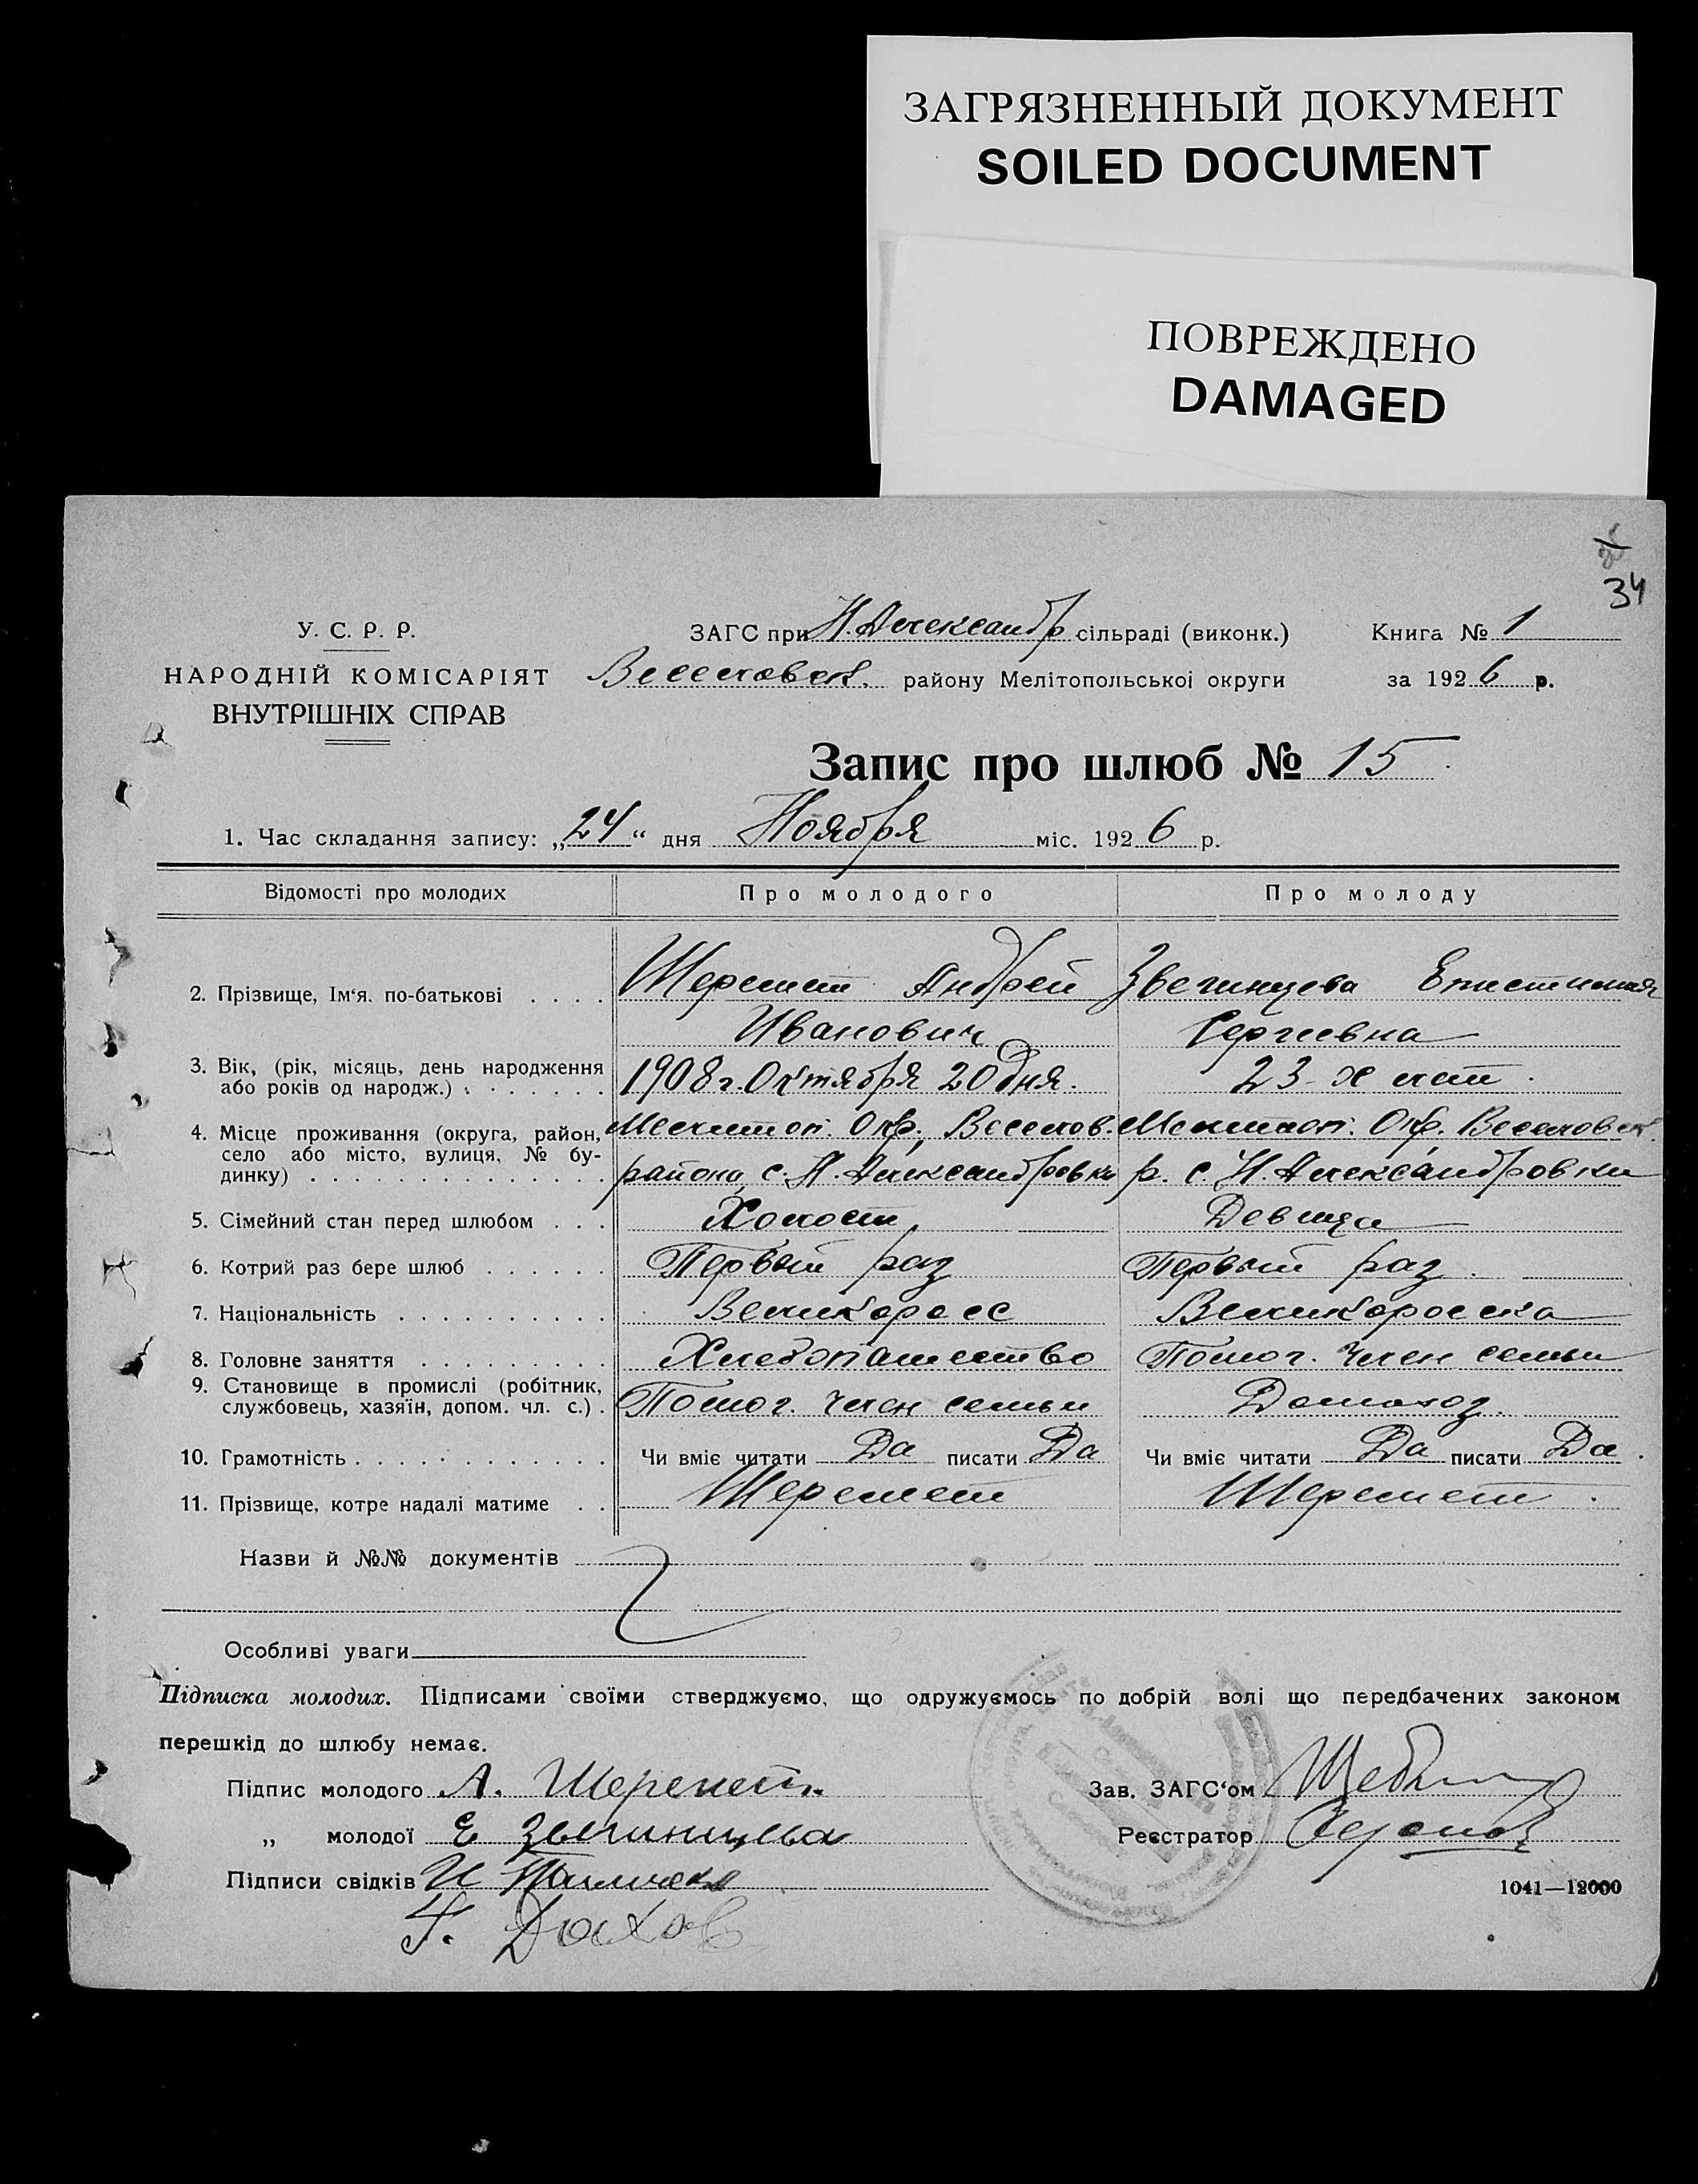 ЗАГРЯЗНЕННЫЙ ДОКУМЕНТ
SOILED DOCUMENT
ПОВРЕЖДЕНО
DAMAGED
34
У. С. Р. Р.
НАРОДНІЙ КОМІСАРІЯТ
ВНУТРІШНІХ СПРАВ
ЗАГС при Н. Александр сільраді (виконк.)
Веселовск. району Мелітопольської округи
Книга № 1
за 1926 р.
Запис про шлюб № 15
1. Час складання запису: „24" дня Ноября міс. 1926 р.
Відомості про молодих Про молодого Про молоду
2. Прізвище, Ім'я. по-батькові . . . . Шеремет Андрей Звегинцева Епистимия
Иванович Сергеевна
3. Вік, (рік, місяць, день народження
або років од народж.) 1908 г. Октября 20 дня. 23-х лет.
4. Місце проживання (округа, район, Мелитоп. Окр., Веселов. Мелитоп. Окр. Веселовск.
село або місто, вулиця, № бу-
динку) района, с. Н. Александровки р. с. Н. Александровки
5. Сімейний стан перед шлюбом . . . Холост Девица
6. Котрий раз бере шлюб . . . . . . Первый раз Первый раз.
7. Національність . . . . . . . . . . Великоросс Великоросска
8. Головне заняття . . . . . . . . . Хлебопашество Помог. член семьи
9. Становище в промислі (робітник,
службовець, хазяїн, допом. чл. с.) . Помог. член семьи Домохоз.
10. Грамотність . . . . . . . . . . . . Чи вміє читати Да писати Да Чи вміє читати Да писати Да.
11. Прізвище, котре надалі матиме . . Шеремет Шеремет.
Назви й №№ документів
Особливі уваги
Підписка молодих. Підписами своїми стверджуємо, що одружуємось по добрій волі що передбачених законом
перешкід до шлюбу немає.
Підпис молодого А. Шеремет.
„ молодої Е Звегинцева
Підписи свідків И
Зав. ЗАГС'ом
Реєстратор
1041—12000